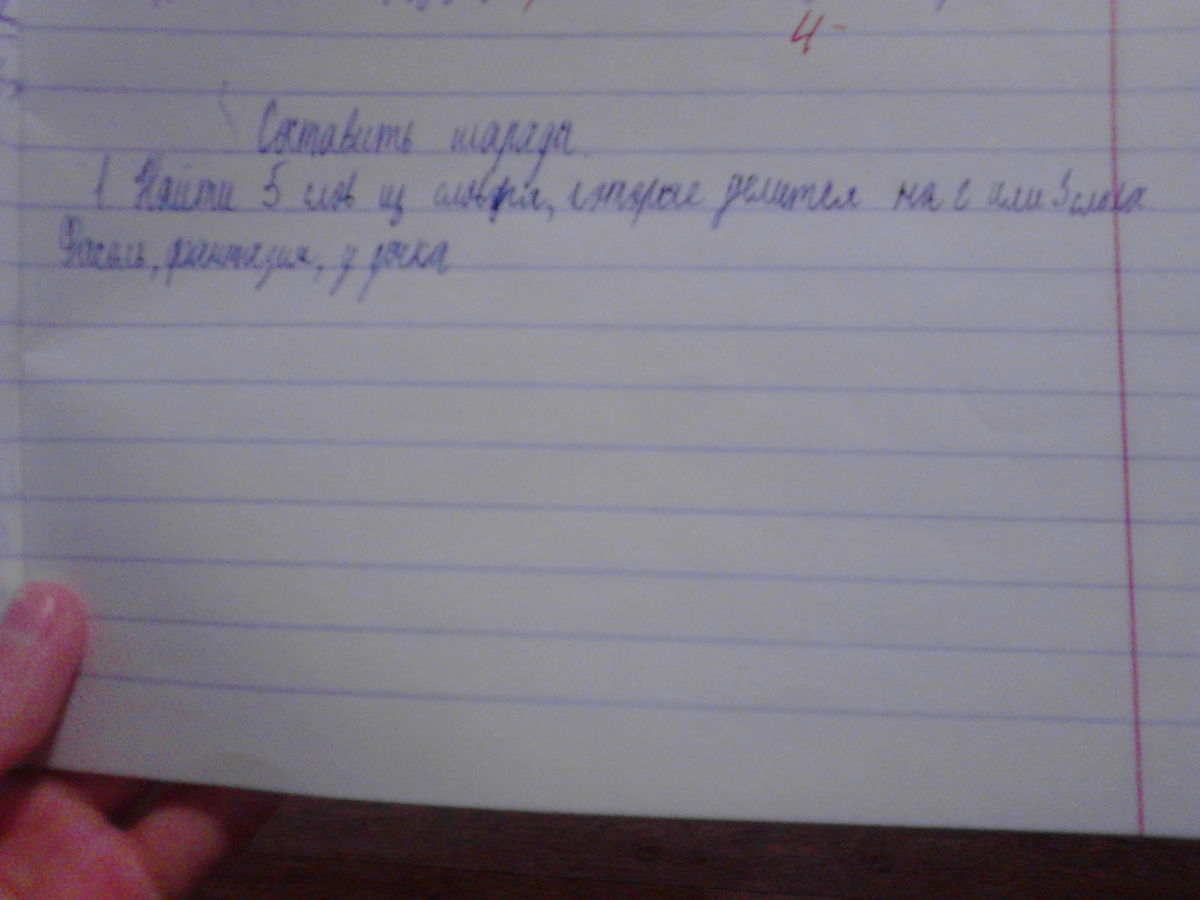 4-
Составить шарады.
1 Найти 5 слов из словаря, которые делится на 2 или 3 слова
фантазия, удочка